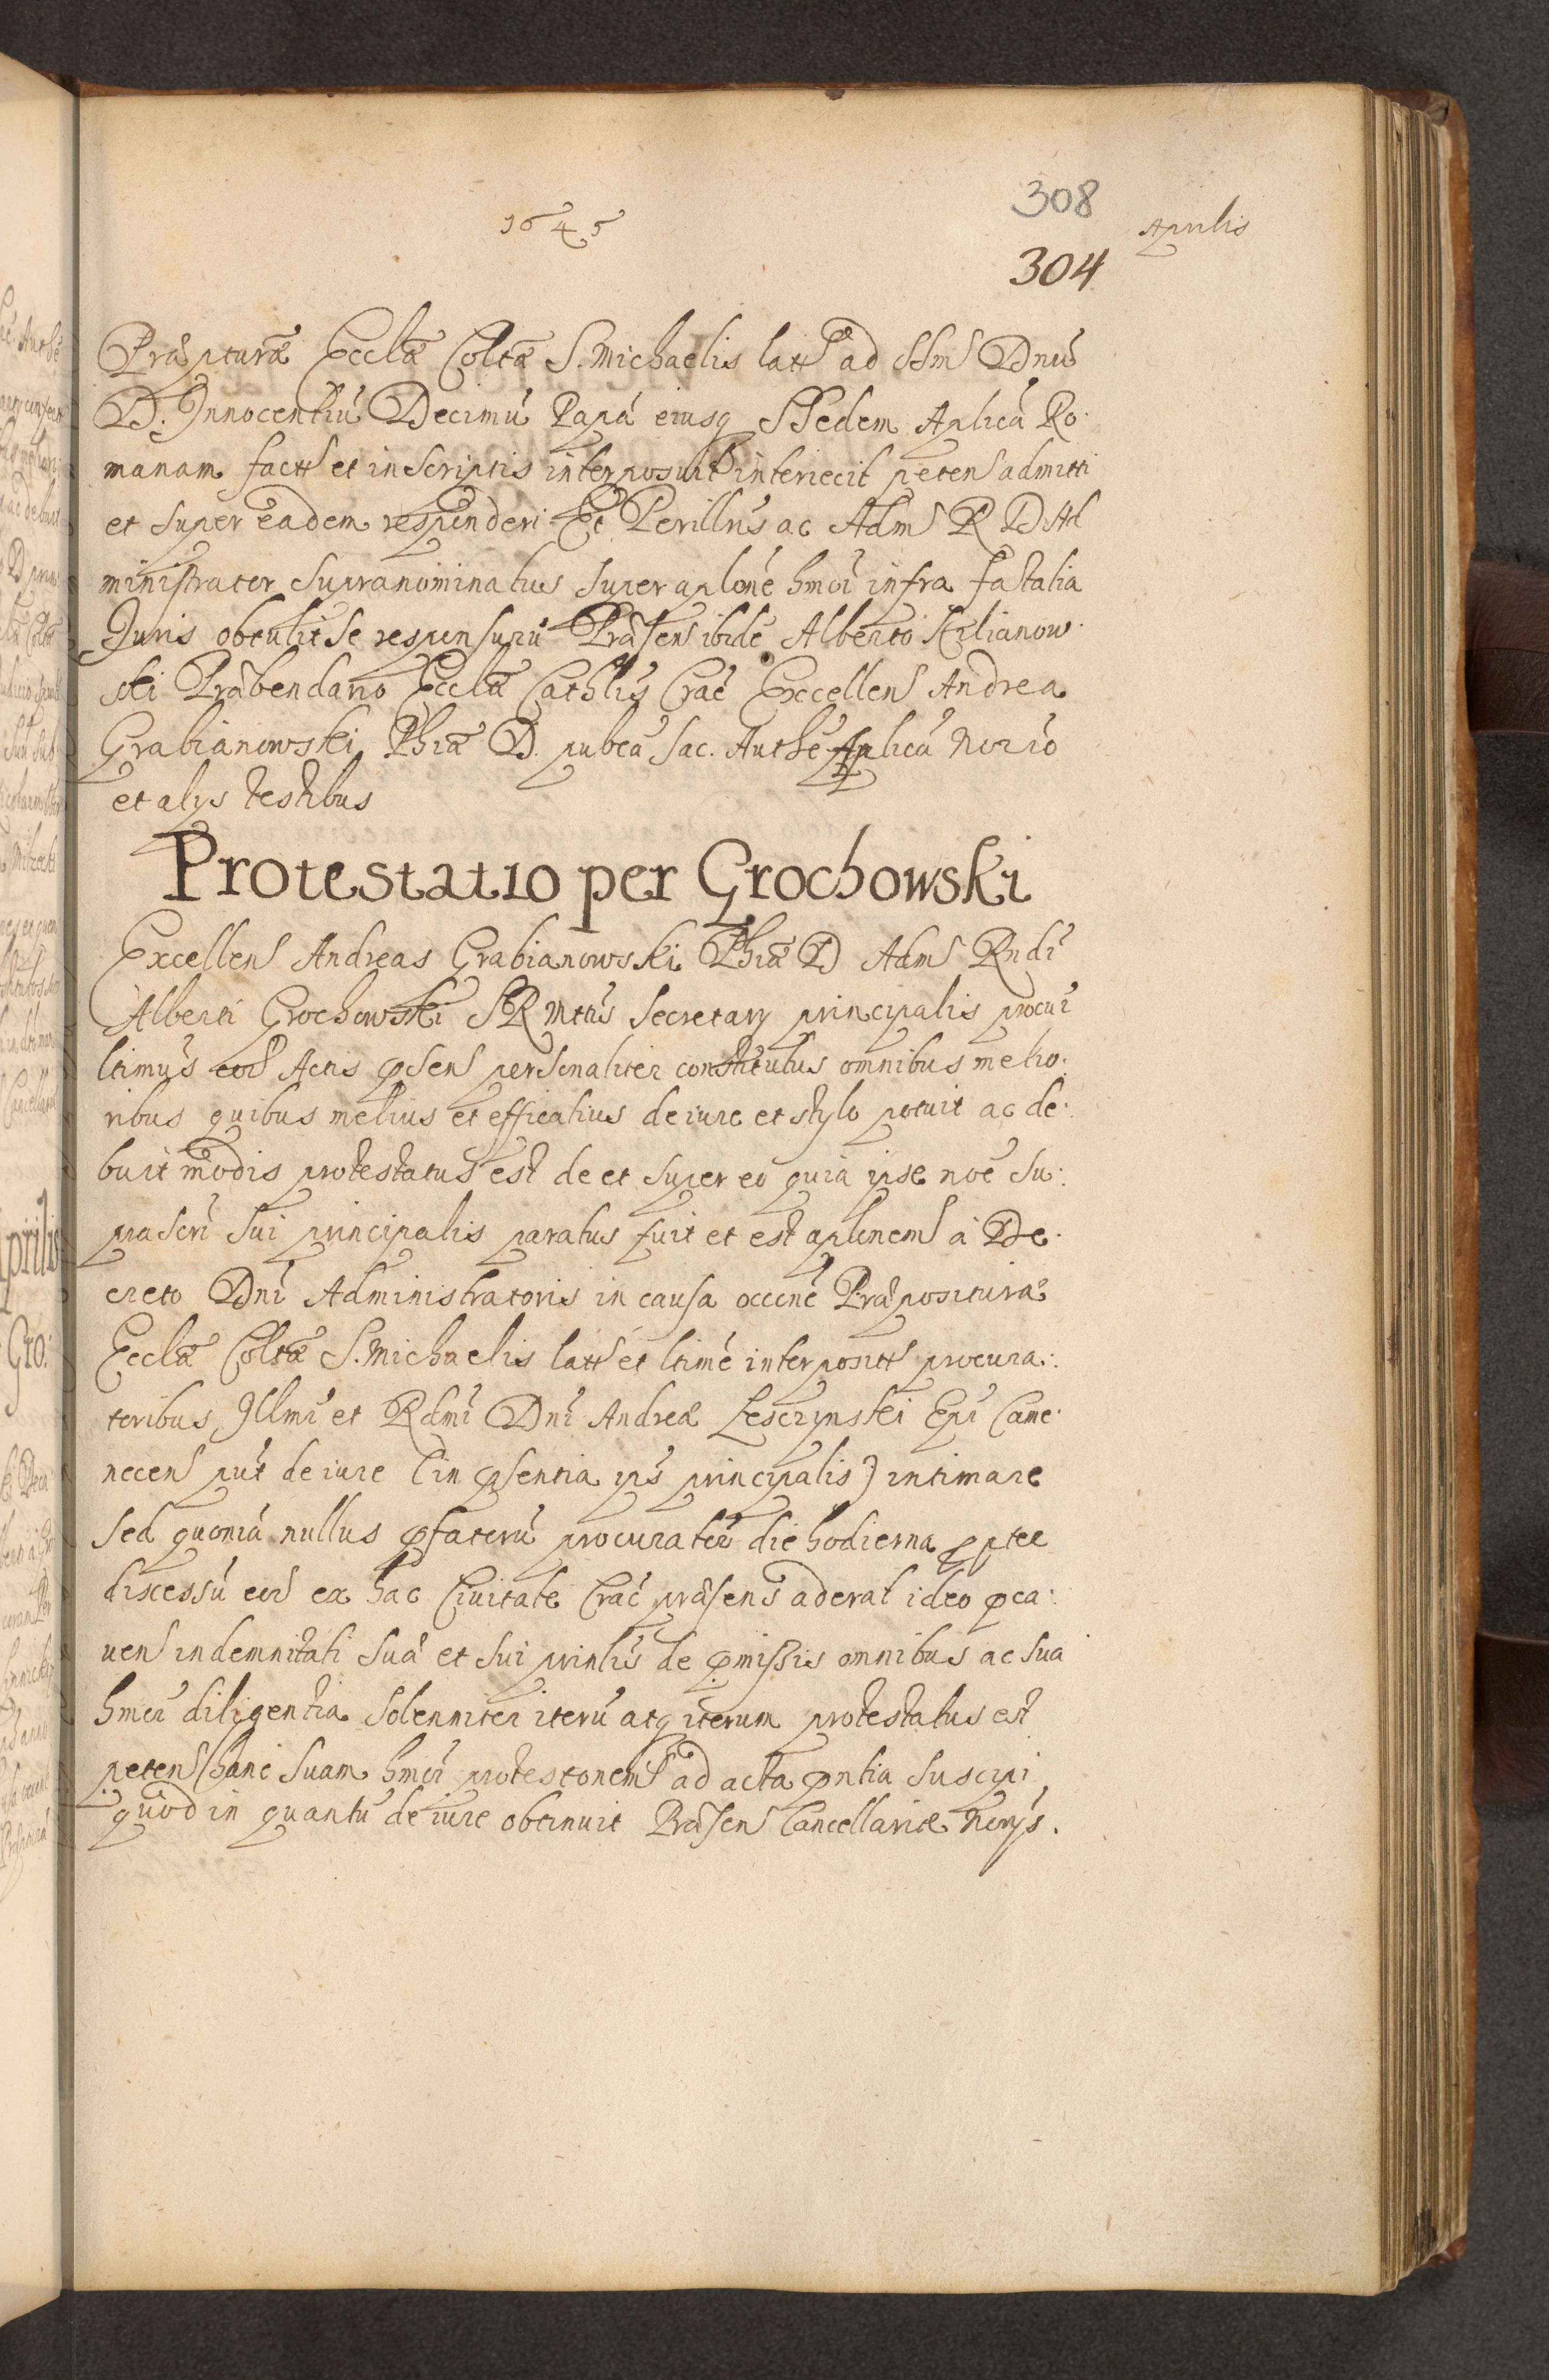 1645
308
Aprilis
304
Præpturæ Ecclæ Coltæ S. Michaelis latt ad SSm Dnū
D. Innocentiū Decimū Papā eiusq SSedem Aplicā Ro:
manam factt et in scriptis interposuit interiecit petens admitti
et super eadem responderi Et Perillris ac Adm R D Ad
ministrator supranominatus super aplone hmoi infra fatalia
Juris obtulit se responsurū Præsen ibide Alberto Kilianow:
ski Præbendario Ecclæ Cathlis Crac Excellen Andrea
Grabianowski Phiæ D. pubca Sac. Authe Aplica Norio
et alys testibus
Protestatio per Grochowski
Excellens Andreas Grabianowski Phiæ D Adm Rndi
Alberti Grochowski S R Mttis Secretary principalis procur
ltimus eor Actis psens personaliter constitutus omnibus melio:
ribus quibus melius et efficatius de iure et stylo potuit ac de:
buit modis protestatus est de et super eo quia ipse noe su:
prascri sui principalis paratus fuit et est aplonem à De:
creto Dni Administratoris in causa occne Præposituræ
Ecclæ Coltæ S. Michaelis latt et ltime interpositt procura:
toribus Illmi et Rdmi Dni Andreæ Lesczynski Epi Came:
necen put de iure (in psentia ips principalis) intimare
Sed quoniā nullus pfatorū procuratorū die hodierna ptee
discessū eor ex hac Civitate Crac præsens aderat ideo pca:
vens indemnitati suæ et sui prinlis de pmissis omnibus ac sua
hmoi diligentia solenniter iterū atq iterum protestatus est
petens hanc suam hmoi protestonem ad acta pntia suscipi
quod in quantū de iure obtinuit Præsen Cancellariæ Norys.